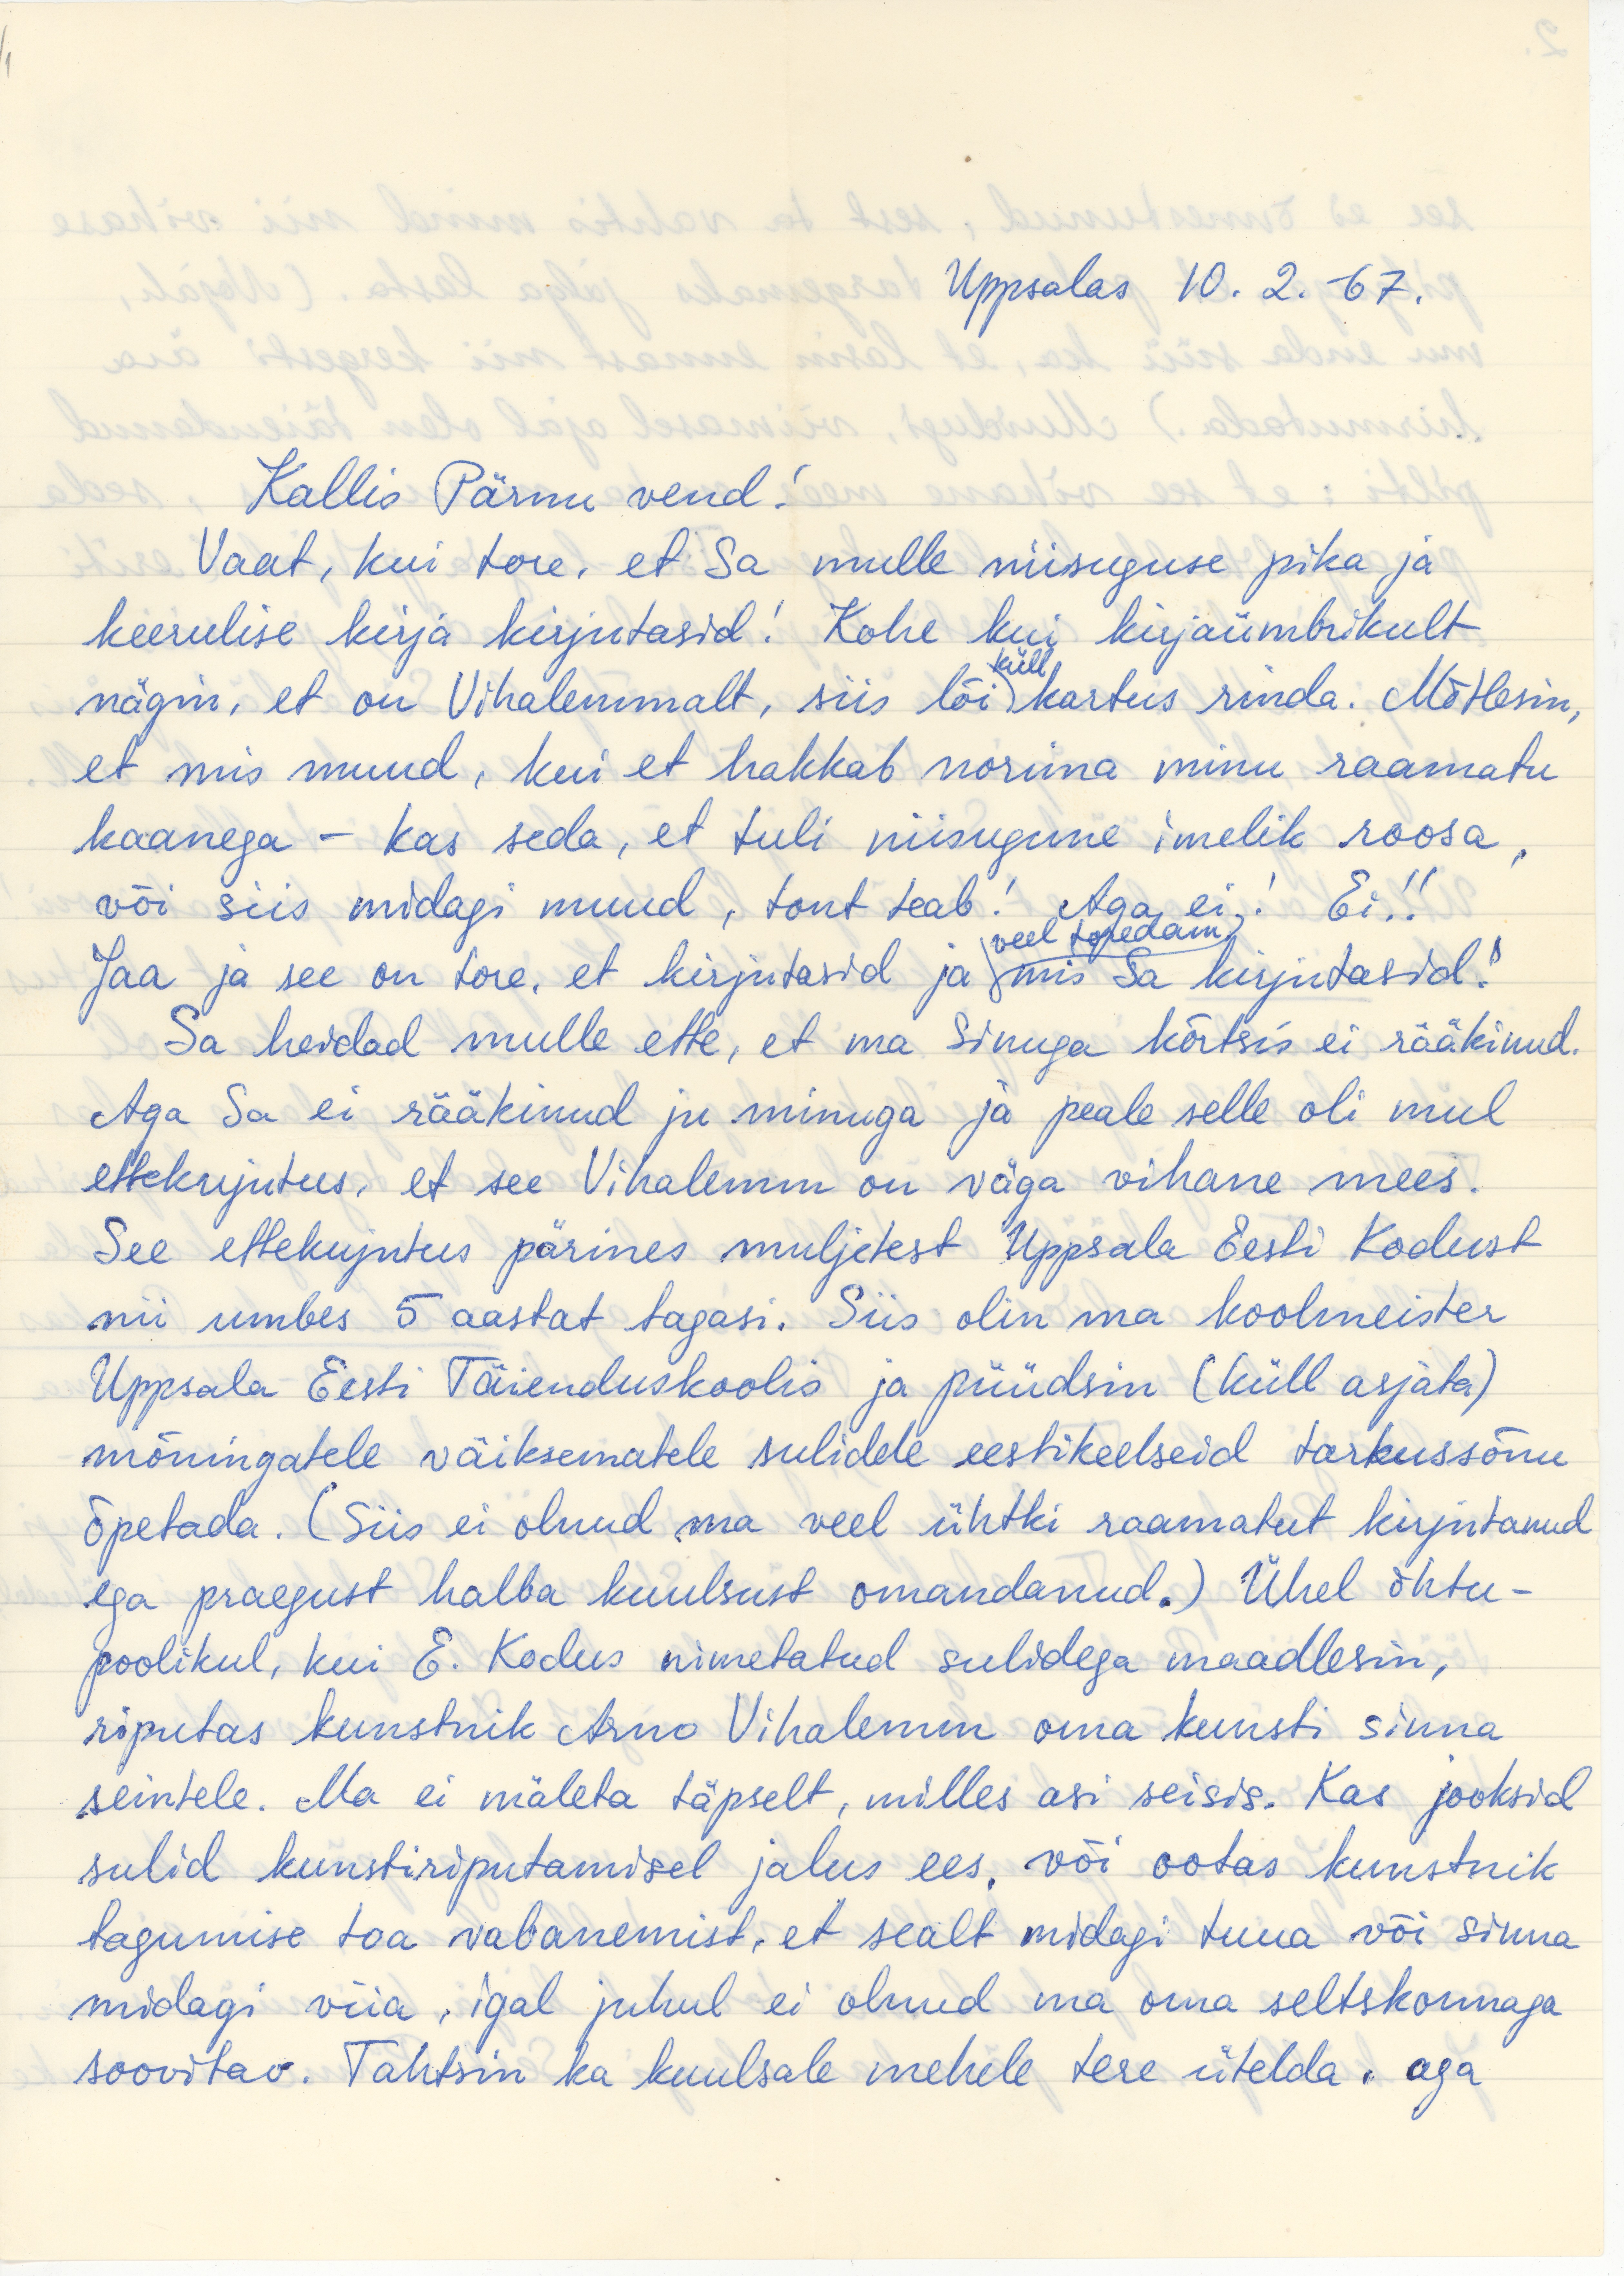 Uppsalas 10. 2. -67.
Kallis Pärnu vend!
Vaat, kui tore, et Sa mulle niisuguse pika ja
keerulise kirja kirjutasid! Kohe kui kirjaümbrikult
nägin, et on Vihalemmalt, siis lõi küll kartus rinda. Mõtlesin,
et mis muud, kui et hakkab norima minu raamatu
kaanega – kas seda, et tuli niisugune imelik roosa,
või siis midagi muud, tont teab! Aga ei! Ei!!
Jaa ja see on tore, et kirjutasid ja veel toredam, mis Sa kirjutasid!
Sa heidad mulle ette, et ma Sinuga kõrtsis ei rääkinud.
Aga Sa ei rääkinud ju minuga ja peale selle oli mul
ettekujutus, et see Vihalemm on väga vihane mees.
See ettekujutus pärines muljetest Uppsala Eesti Kodust
nii umbes 5 aastat tagasi. Siis olin ma koolmeister
Uppsala Eesti Täienduskoolis ja püüdsin (küll asjata)
mõningatele väiksematele sulidele eestikeelseid tarkussõnu
õpetada. (Siis ei olnud ma veel ühtki raamatut kirjutanud
ega praegust halba kuulsust omandanud.) Ühel õhtu-
poolikul, kui E. Kodus nimetatud sulidega maadlesin,
riputas kunstnik Arno Vihalemm oma kunsti sinna
seintele. Ma ei mäleta täpselt, milles asi seisis. Kas jooksid
sulid kunstiriputamisel jalus ees, või ootas kunstnik
tagumise toa vabanemist, et sealt midagi tuua või sinna
midagi viia, igal juhul ei olnud ma oma seltskonnaga
soovitav. Tahtsin ka kuulsale mehele tere ütelda, aga